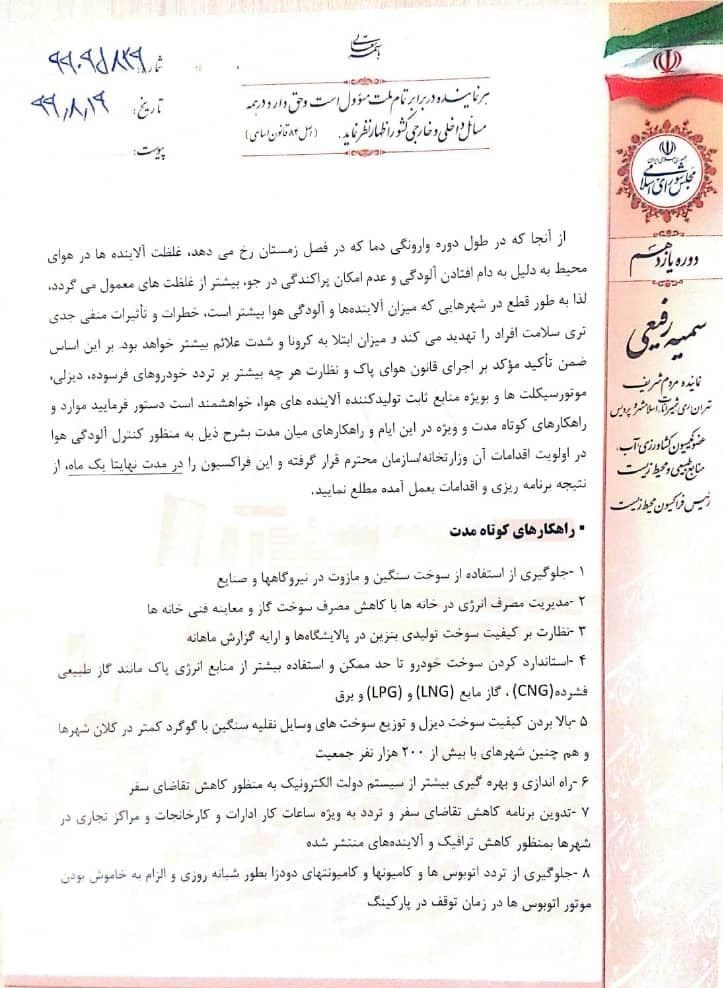 باسمه تعالی
هر نماینده در برابر تمام ملت مسؤول است و حق دارد در همه
مسائل داخلی و خارجی کشور اظهار نظر نماید. (اصل ۸۴ قانون اساسی)
شماره: ۹۹۰۹۵۸۲۹
تاریخ: ۹۹٫۸٫۱۹
پیوست:
جمهوری اسلامی ایران
مجلس شورای اسلامی
دوره یازدهم
سمیه رفیعی
نماینده مردم شریف
تهران، ری، شمیرانات، اسلامشهر و پردیس
عضو کمیسیون کشاورزی، آب،
منابع طبیعی و محیط زیست
رئیس فراکسیون محیط زیست
از آنجا که در طول دوره وارونگی دما که در فصل زمستان رخ می دهد، غلظت آلاینده ها در هوای
محیط به دلیل به دام افتادن آلودگی و عدم امکان پراکندگی در جو، بیشتر از غلظت های معمول می گردد،
لذا به طور قطع در شهرهایی که میزان آلاینده‌ها و آلودگی هوا بیشتر است، خطرات و تأثیرات منفی جدی
تری سلامت افراد را تهدید می کند و میزان ابتلا به کرونا و شدت علائم بیشتر خواهد بود. بر این اساس
ضمن تأکید مؤکد بر اجرای قانون هوای پاک و نظارت هر چه بیشتر بر تردد خودروهای فرسوده، دیزلی،
موتورسیکلت ها و بویژه منابع ثابت تولیدکننده آلاینده های هوا، خواهشمند است دستور فرمایید موارد و
راهکارهای کوتاه مدت و ویژه در این ایام و راهکارهای میان مدت بشرح ذیل به منظور کنترل آلودگی هوا
در اولویت اقدامات آن وزارتخانه/سازمان محترم قرار گرفته و این فراکسیون را در مدت نهایتا یک ماه، از
نتیجه برنامه ریزی و اقدامات بعمل آمده مطلع نمایید.
▪ راهکارهای کوتاه مدت
۱ -جلوگیری از استفاده از سوخت سنگین و مازوت در نیروگاهها و صنایع
۲ -مدیریت مصرف انرژی در خانه ها با کاهش مصرف سوخت گاز و معاینه فنی خانه ها
۳ -نظارت بر کیفیت سوخت تولیدی بنزین در پالایشگاه‌ها و ارایه گزارش ماهانه
۴ -استاندارد کردن سوخت خودرو تا حد ممکن و استفاده بیشتر از منابع انرژی پاک مانند گاز طبیعی
فشرده(CNG) ، گاز مایع (LNG) و (LPG) و برق
۵ -بالا بردن کیفیت سوخت دیزل و توزیع سوخت های وسایل نقلیه سنگین با گوگرد کمتر در کلان شهرها
و هم چنین شهرهای با بیش از ۲۰۰ هزار نفر جمعیت
۶ -راه اندازی و بهره گیری بیشتر از سیستم دولت الکترونیک به منظور کاهش تقاضای سفر
۷ -تدوین برنامه کاهش تقاضای سفر و تردد به ویژه ساعات کار ادارات و کارخانجات و مراکز تجاری در
شهرها بمنظور کاهش ترافیک و آلاینده‌های منتشر شده
۸ -جلوگیری از تردد اتوبوس ها و کامیونها و کامیونتهای دودزا بطور شبانه روزی و الزام به خاموش بودن
موتور اتوبوس ها در زمان توقف در پارکینگ